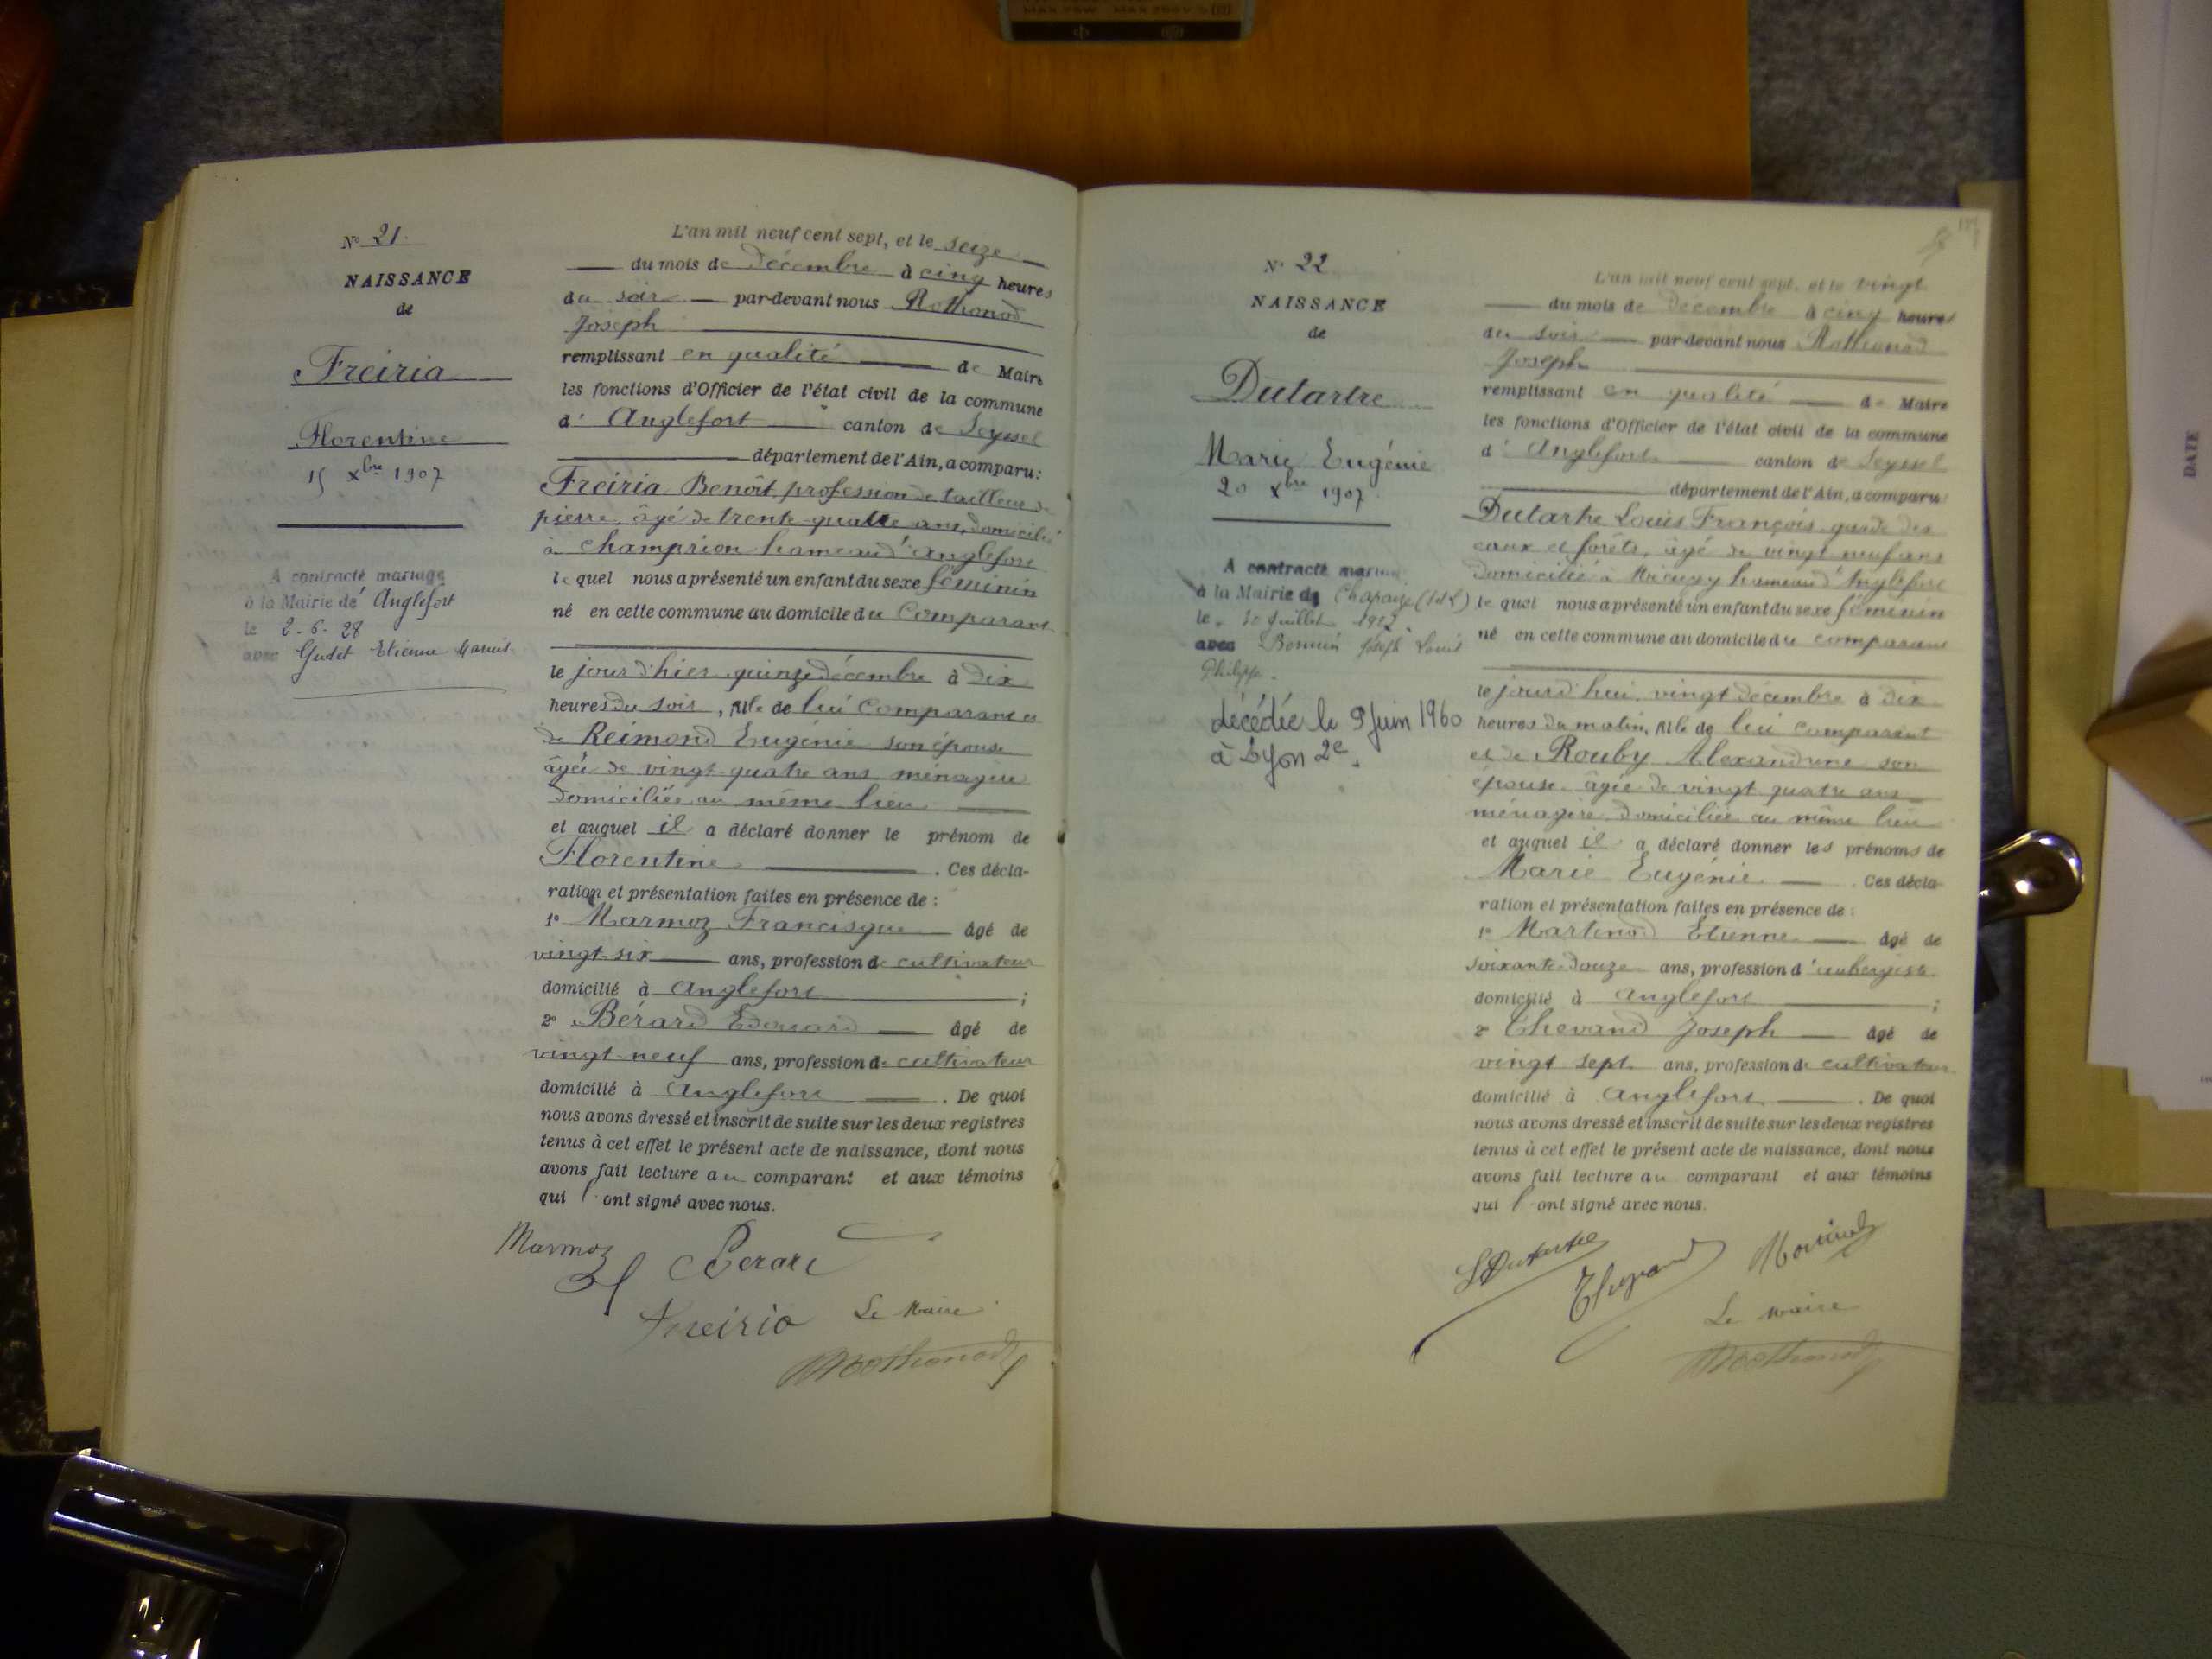 N° 21.
NAISSANCE
de
Freiria
Florentine
15 Xbre 1907
A contracté mariage
à la Mairie de Anglefort
le 2-6-28
avec Gudet Etienne Marius
L'an mil neuf cent sept, et le seize
du mois de décembre à cinq heures
du soir par-devant nous Rothonod
Joseph
remplissant en qualité de Maire
les fonctions d'Officier de l'état civil de la commune
d' Anglefort canton de Seyssel
département de l'Ain, a comparu :
Freiria Benoît profession de tailleur de
pierre, âgé de trente-quatre ans, domicilié
à Champrion hameau d'Anglefort
lequel nous a présenté un enfant du sexe féminin
né en cette commune au domicile du comparant
le jour d'hier quinze décembre à dix
heures du soir, fille de lui comparant et
de Reimond Eugénie son épouse
âgée de vingt-quatre ans ménagère
domiciliée au même lieu
et auquel il a déclaré donner le prénom de
Florentine . Ces décla-
ration et présentation faites en présence de :
1° Marmoz Francisque âgé de
vingt-six ans, profession de cultivateur
domicilié à Anglefort ;
2° Bérard Edouard âgé de
vingt-neuf ans, profession de cultivateur
domicilié à Anglefort . De quoi
nous avons dressé et inscrit de suite sur les deux registres
tenus à cet effet le présent acte de naissance, dont nous
avons fait lecture au comparant et aux témoins
qui l'ont signé avec nous.
Marmoz
Berard
Freiria Le Maire
Rothonod
N° 22
NAISSANCE
de
Dutartre
Marie Eugénie
20 Xbre 1907
A contracté mariage
à la Mairie de Chapaize (S et L)
le juillet
avec Joseph Louis
Philippe.
décédée le 9 Juin 1960
à Lyon 2e.
L'an mil neuf cent sept, et le vingt
du mois de décembre à cinq heures
du soir par-devant nous Rothonod
Joseph
remplissant en qualité de Maire
les fonctions d'Officier de l'état civil de la commune
d' Anglefort canton de Seyssel
département de l'Ain, a comparu
Dutartre Louis François garde des
eaux et forêts, âgé de vingt neuf ans
domicilié à hameau d'Anglefort
lequel nous a présenté un enfant du sexe féminin
né en cette commune au domicile du comparant
le jourd'hui vingt décembre à dix
heures du matin, fille de lui comparant
et de Rouby Alexandrine son
épouse âgée de vingt quatre ans
ménagère domiciliée au même lieu
et auquel il a déclaré donner les prénoms de
Marie Eugénie . Ces décla-
ration et présentation faites en présence de :
1° Martinod Etienne âgé de
soixante-douze ans, profession d'aubergiste
domicilié à Anglefort ;
2° Thevand Joseph âgé de
vingt sept ans, profession de cultivateur
domicilié à Anglefort . De quoi
nous avons dressé et inscrit de suite sur les deux registres
tenus à cet effet le présent acte de naissance, dont nous
avons fait lecture au comparant et aux témoins
qui l'ont signé avec nous.
LDutartre
Thevand
Martinod
Le Maire
Rothonod
DATE